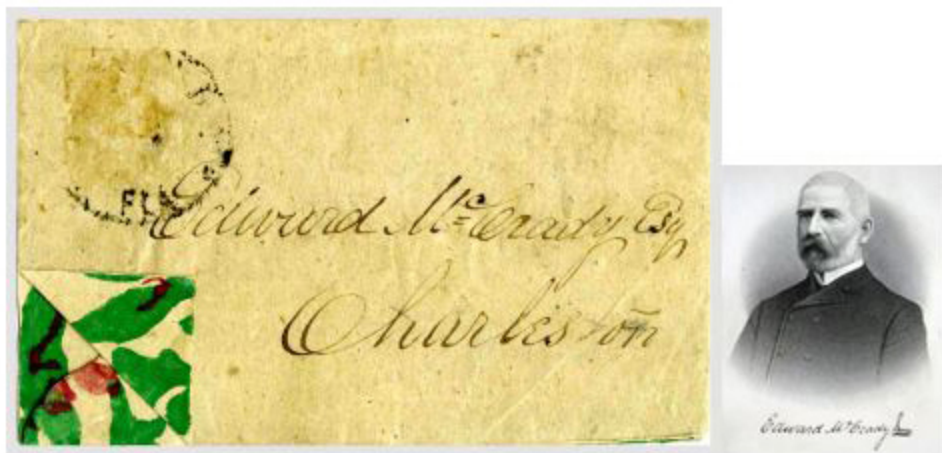 FLA
Edward McCrady Esq
Charleston
Edward McCrady Jr